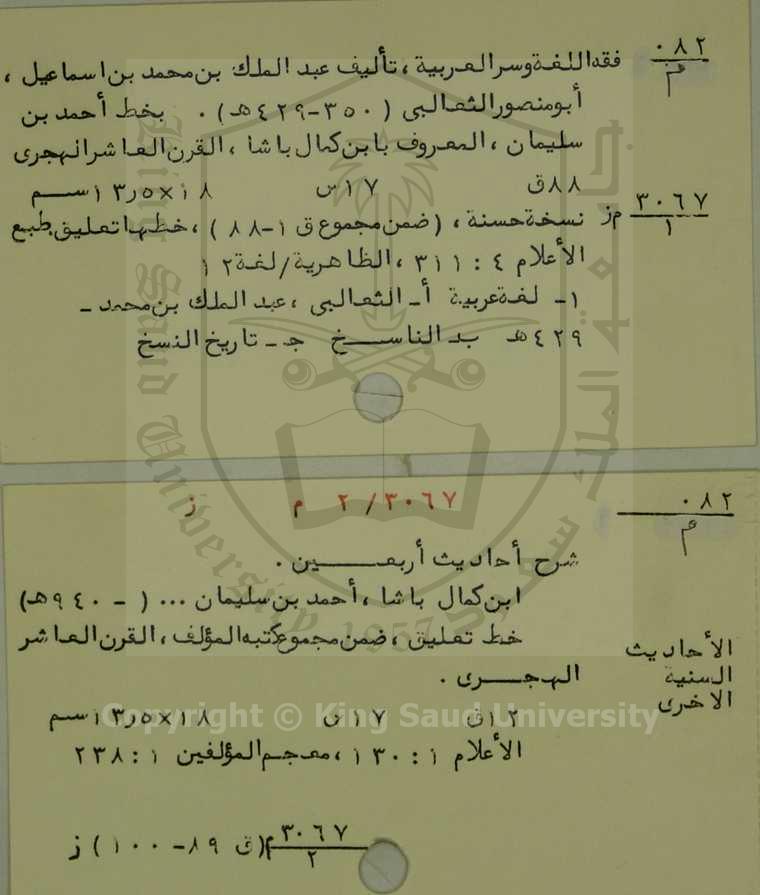 ٠٨٢
م
فقه اللغة وسر العربية ، تأليف عبد الملك بن محمد بن اسماعيل ،
أبو منصور الثعالبي ( ٣٥٠-٤٢٩هـ ) . بخط أحمد بن
سليمان ، المعروف بابن كمال باشا ، القرن العاشر الهجرى
٨٨ق ١٧س ١٨×١٣٫٥سم
٣٠٦٧
١
م ز
نسخة حسنة ، ( ضمن مجموع ق ١-٨٨ ) ، خطها تعليق ، طبع
الأعلام ٤ : ٣١١ ، الظاهرية/لغة ١٢
١- لغة عربية أ- الثعالبي ، عبد الملك بن محمد -
٤٢٩هـ ب- الناسخ ج- تاريخ النسخ
٣٠٦٧/٢ م ز
٠٨٢
م
شرح أحاديث أربعين .
ابن كمال باشا ، أحمد بن سليمان ... ( - ٩٤٠هـ)
خط تعليق ، ضمن مجموع كتبه المؤلف ، القرن العاشر
الهجرى .
الأحاديث
السنية
الاخرى
١٢ق ١٧س ١٨×١٣٫٥سم
الأعلام ١ : ١٣٠ ، معجم المؤلفين ١ : ٢٣٨
٣٠٦٧
٢
م(ق ٨٩-١٠٠) ز
جامعة الملك سعود
King Saud University
1957
Copyright © King Saud University